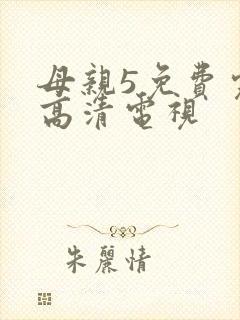 母親5免費
高清電視
朱麗情